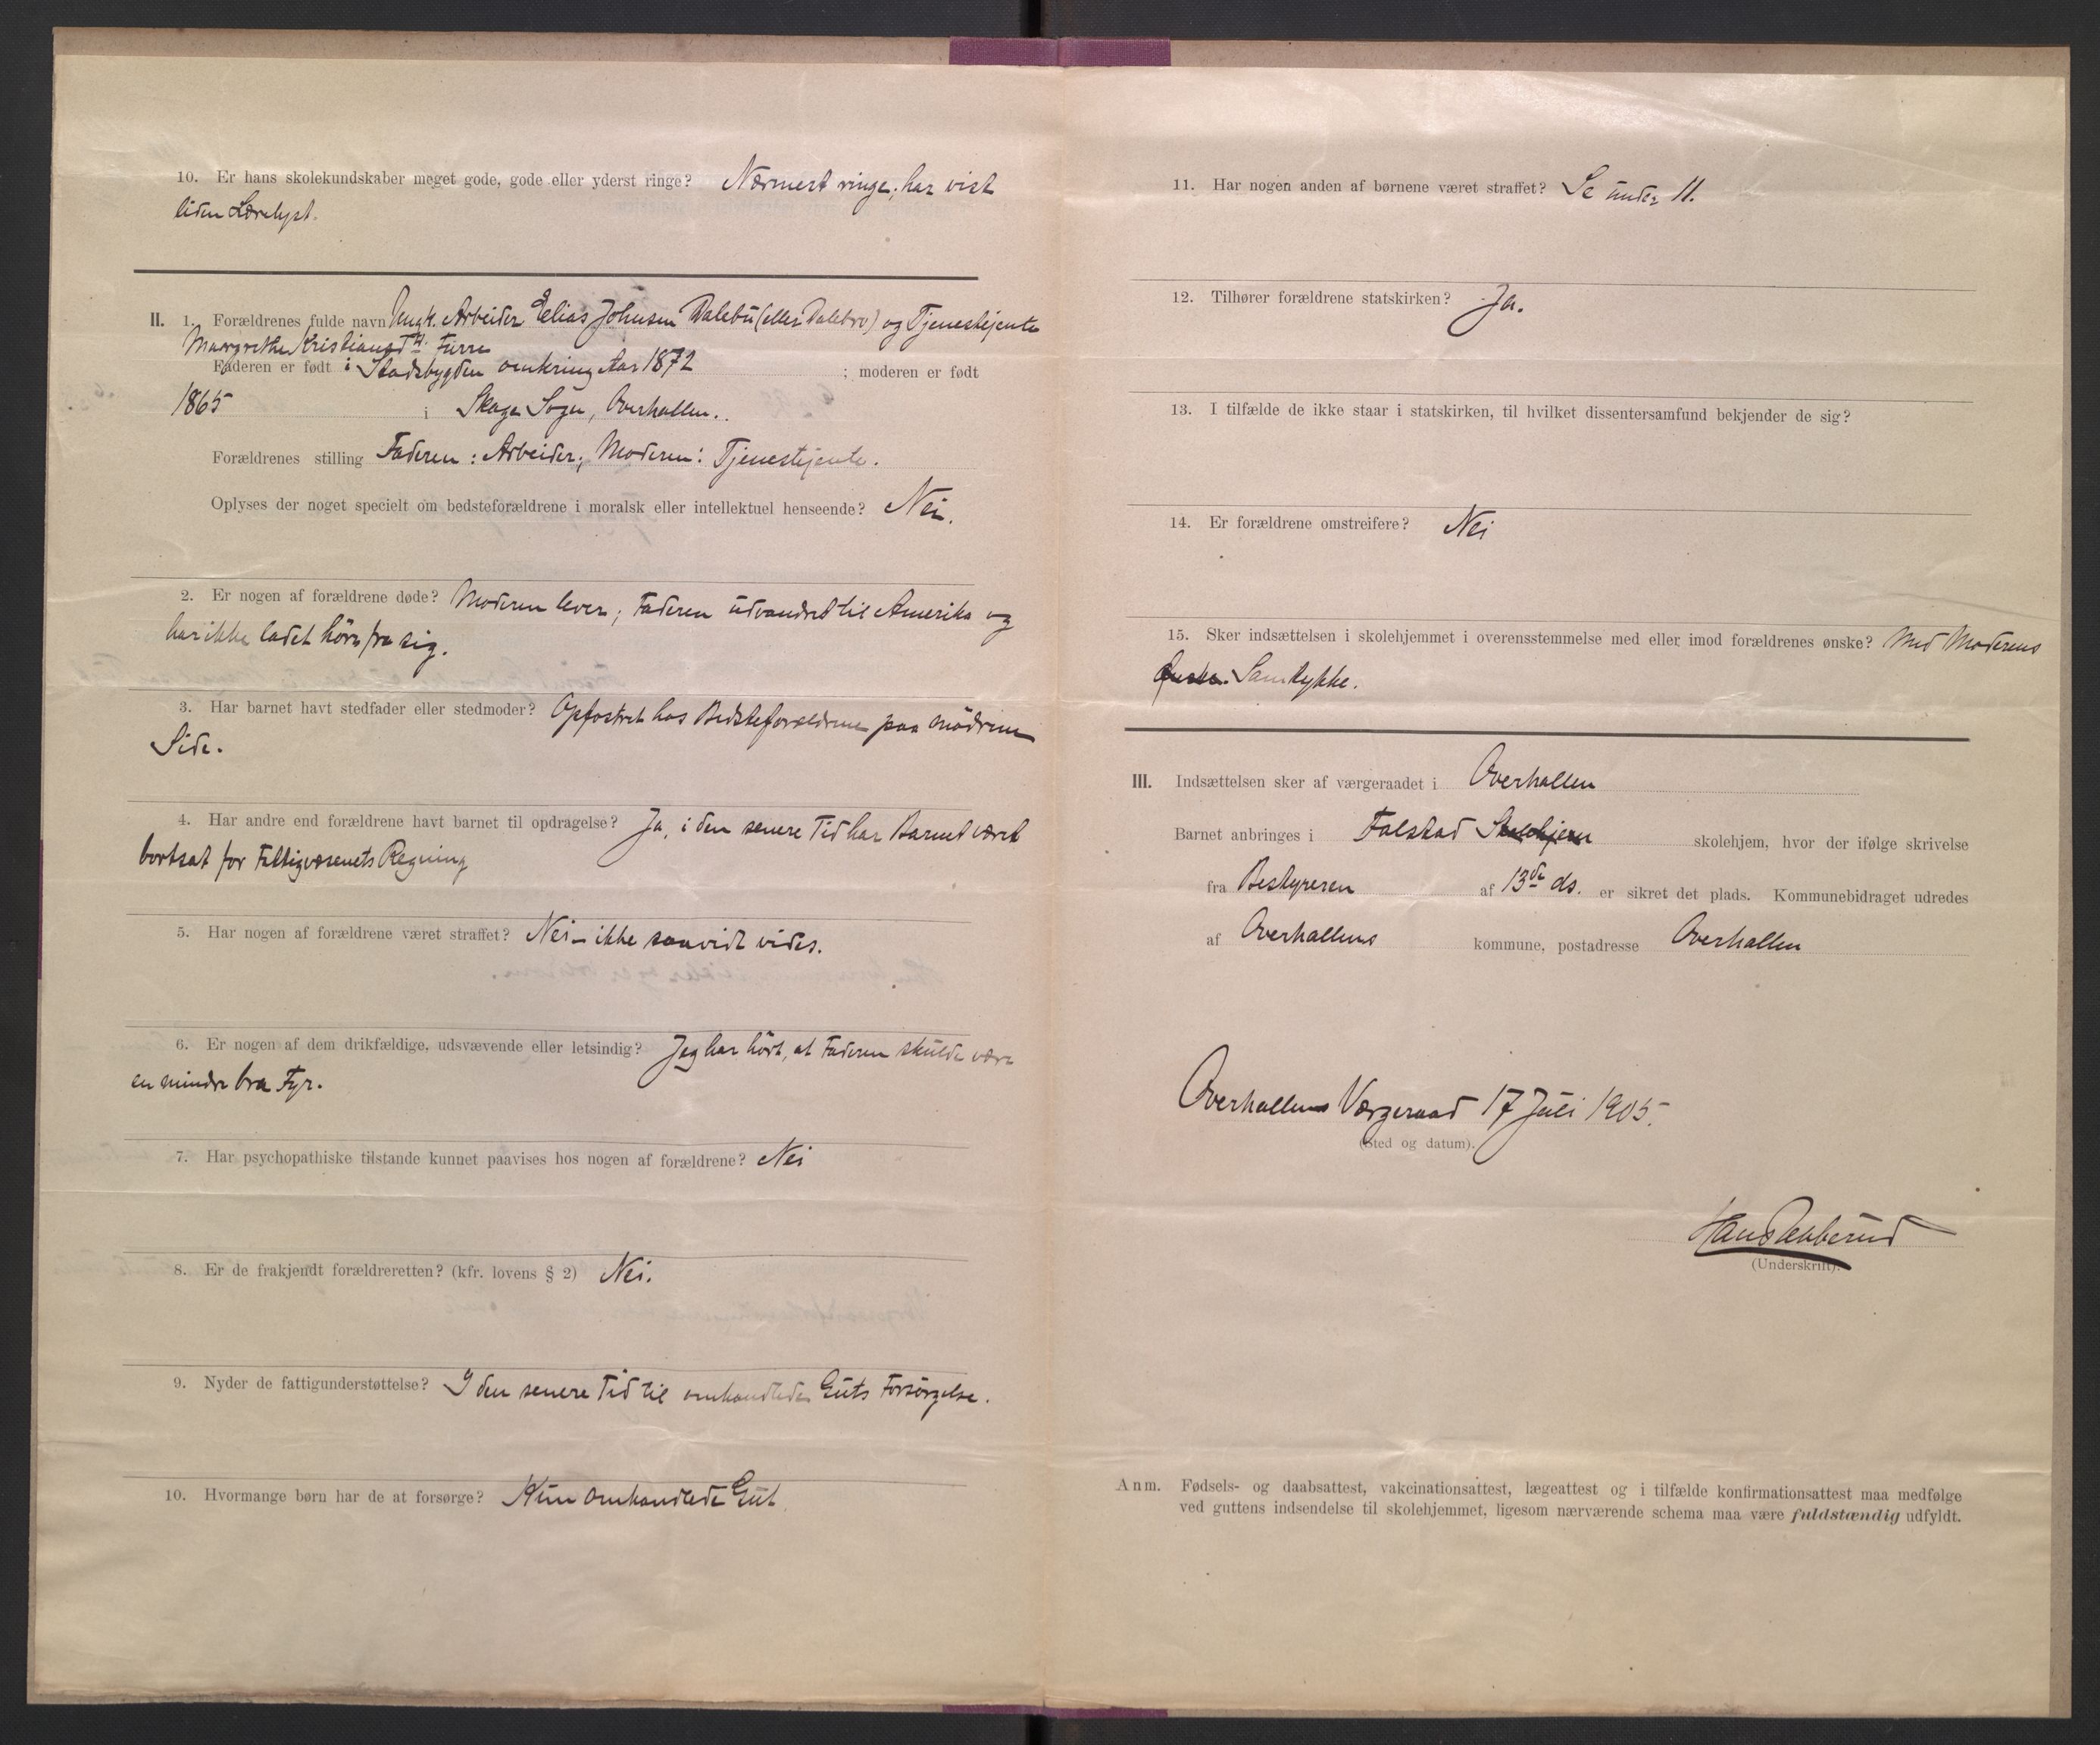 10. Er hans skolekundskaber meget gode, gode eller yderst ringe? Nærmest ringe, har vist
liden Lærelyst.
II. 1. Forældrenes fulde navn Ungk. Arbeider Elias Johnsen Dalebu (eller Dalebro) og Tjenestejente
Margrethe Kristiansdtr. Furre
Faderen er født i Stadsbygden omkring Aar 1872 ; moderen er født
1865 i Skage Sogn, Overhallen.
Forældrenes stilling Faderen: Arbeider; Moderen: Tjenestejente.
Oplyses der noget specielt om bedsteforældrene i moralsk eller intellektuel henseende? Nei.
2. Er nogen af forældrene døde? Moderen lever; Faderen udvandret til Amerika og
har ikke ladet høre fra sig.
3. Har barnet havt stedfader eller stedmoder? Opfostret hos Bedsteforældrene paa mødrene
Side.
4. Har andre end forældrene havt barnet til opdragelse? Ja, i den senere Tid har Barnet været
bortsat for Fattigvæsenets Regning
5. Har nogen af forældrene været straffet? Nei – ikke saavidt vides.
6. Er nogen af dem drikfældige, udsvævende eller letsindig? Jeg har hørt, at Faderen skulde være
en mindre bra Fyr.
7. Har psychopathiske tilstande kunnet paavises hos nogen af forældrene? Nei
8. Er de frakjendt forældreretten? (kfr. lovens § 2) Nei.
9. Nyder de fattigunderstøttelse? I den senere Tid til omhandlede Guts Forsørgelse.
10. Hvormange børn har de at forsørge? Kun omhandlede Gut.
11. Har nogen anden af børnene været straffet? Se under 11.
12. Tilhører forældrene statskirken? Ja.
13. I tilfælde de ikke staar i statskirken, til hvilket dissentersamfund bekjender de sig?
14. Er forældrene omstreifere? Nei
15. Sker indsættelsen i skolehjemmet i overensstemmelse med eller imod forældrenes ønske? Med Moderens
Ønske. Samtykke.
III. Indsættelsen sker af værgeraadet i Overhallen
Barnet anbringes i Falstad Skolehjem skolehjem, hvor der ifølge skrivelse
fra Bestyreren af 13de ds. er sikret det plads. Kommunebidraget udredes
af Overhallens kommune, postadresse Overhallen
Overhallens Værgeraad 17 Juli 1905.
(Sted og datum).
Hans
(Underskrift).
Anm. Fødsels- og daabsattest, vakcinationsattest, lægeattest og i tilfælde konfirmationsattest maa medfølge
ved guttens indsendelse til skolehjemmet, ligesom nærværende schema maa være fuldstændig udfyldt.